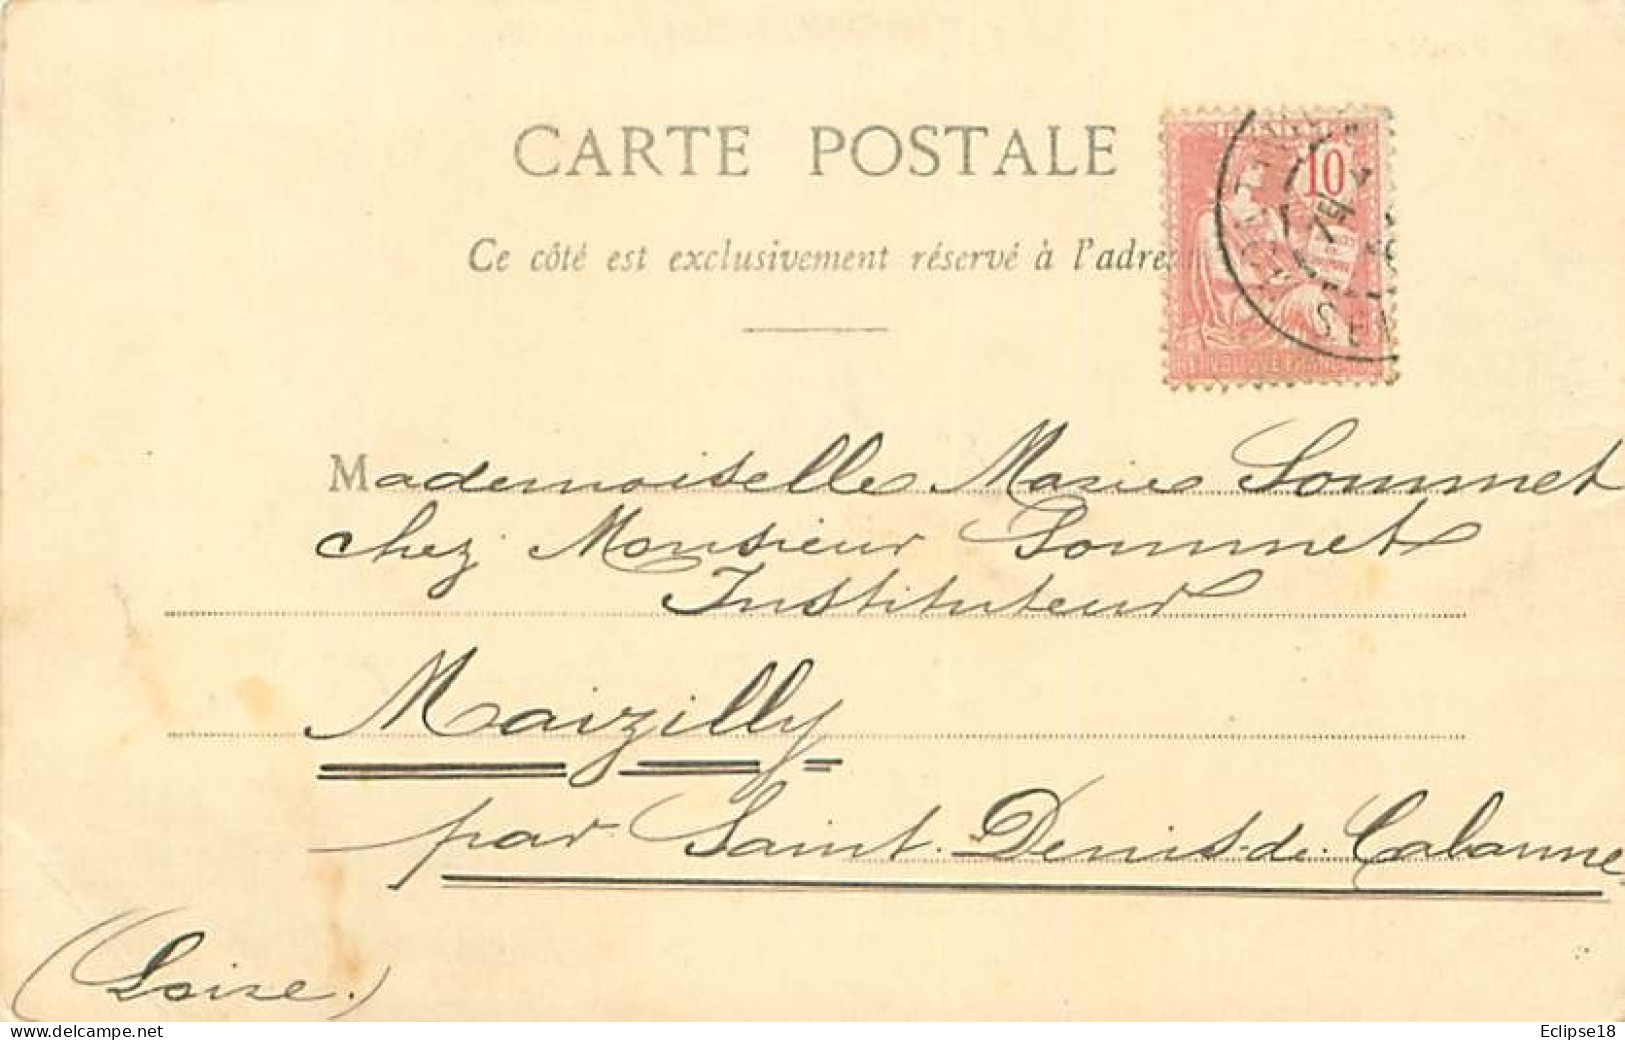 CARTE POSTALE
10
Ce côté est exclusivement réservé à l'adre
Mademoiselle Marie Sommet
chez Monsieur Sommet
Instituteur
Maizilly
par Saint-Denis-de-Cabanne
(Loire.)
delcampe.net
Eclipse18